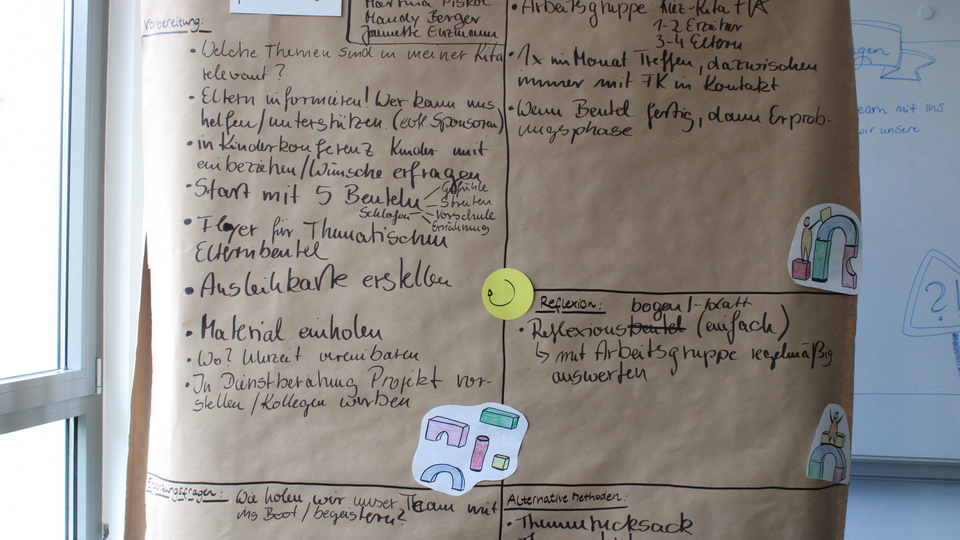 Vorbereitung:
Mandy Berger
Jannette Enzmann
• Welche Themen sind in meiner Kita
relevant?
• Eltern informieren! Wer kann uns
helfen/unterstützen (evtl. Sponsoren)
• in Kinderkonferenz Kinder mit
einbeziehen/Wünsche erfragen
• Start mit 5 Beuteln
Gefühle
Streiten
Schlafen
Vorschule
Ernährung
• Flyer für Thematischen
Elternbeutel
• Ausleihkarte erstellen
• Material einholen
• Wo? Uhrzeit vereinbaren
• In Dienstberatung Projekt vor-
stellen/Kollegen werben
• Arbeitsgruppe: Kiez-Kita FK
1-2 Erzieher
3-4 Eltern
• 1x im Monat Treffen, dazwischen
immer mit FK in Kontakt
• Wenn Beutel fertig, dann Erprob-
ungsphase
Reflexion: bogen/-blatt
• Reflexionsbeutel (einfach)
↳ mit Arbeitsgruppe regelmäßig
auswerten
Wie holen wir unser Team mit
ins Boot/begeistern?
Alternative Methoden:
• Themenrucksack
gen
mit ins
wir unsere
?!